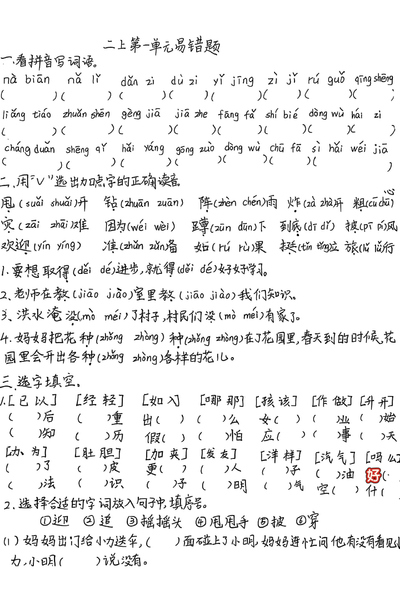 二上第一单元易错题
一.看拼音写词语。
nǎ biān nǎ lǐ dān zi dù zi yǐ jīng zì jǐ rú guǒ qīng shēng
( )( )( )( )( )( )( )( )
liǎng tiáo zhuǎn shēn gèng jiā jiǎ zhe fāng fǎ shí bié dòng wù hái zi
( )( )( )( )( )( )( )( )
cháng duǎn shēng qì hǎi yáng gōng zuò dòng wù chū fā sì hǎi wéi jiā
( )( )( )( )( )( )( )
二.用"√"选出加点字的正确读音
甩(suǎi shuǎi)开 钻(zhuān zuān) 阵(zhèn chén)雨 炸(zà zhà)开 粗(cū dà)心
灾(zāi zhāi)难 因为(wéi wèi) 蹲(zūn dūn)下 到底(dǐ dǐ) 披(pī pī)风
欢迎(yín yíng) 准(zhǔn zǔn)备 如(rú rù)果 挺(tǐn tǐng)立 旅(lǚ lǘ)行
1.要想取得(děi dé)进步,就得(děi dé)好好学习。
2.老师在教(jiāo jiào)室里教(jiāo jiào)我们知识。
3.洪水淹没(mò méi)了村子,村民们没(mò méi)有家了。
4.妈妈把花种(zhǒng zhòng)种(zhǒng zhòng)在了花园里,春天到的时候,花
园里会开出各种(zhǒng zhòng)各样的花儿。
三.选字填空。
1.[已 以] [经 轻] [如 入] [哪 那] [孩 该] [作 做] [升 开]
( )后 ( )重 出( ) ( )么 女( ) ( )业 ( )始
( )知 ( )历 假( ) ( )怕 应( ) ( )事 ( )天
[办 为] [肚 胆] [加 夹] [发 友] [洋 样] [汽 气] [吗 么]
( )了 ( )皮 更( ) ( )人 ( )子 ( )油 好(
( )法 ( )识 ( )子 ( )明 ( )气 空( ) 什(
2.选择合适的字词放入句子中,填序号。
①迎 ②追 ③摇摇头 ④甩甩手 ⑤披 ⑥穿
(1)妈妈出门给小力送伞,( )面碰上了小明,妈妈连忙问他有没有看见小
力,小明( )说没有。